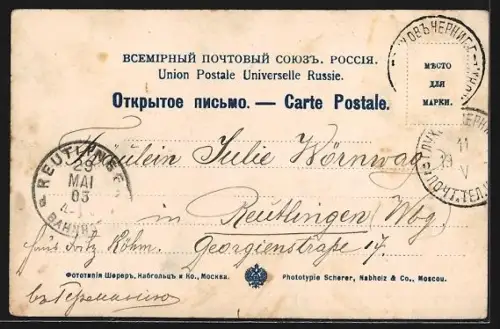 ВСЕМІРНЫЙ ПОЧТОВЫЙ СОЮЗЪ. РОССІЯ.
Union Postale Universelle Russie.
Открытое письмо. — Carte Postale.
МѢСТО
ДЛЯ
МАРКИ.
11
19
V
REUTLINGEN
29
MAI
03
BAHNHOF
Fräulein Julie Wörnwag
in Reutlingen (Wbg)
Haus Fritz Röhm. Georgienstraße 17.
Фототипія Шереръ, Набгольцъ и Ко., Москва. Phototypie Scherer, Nabholz & Co., Moscou.
въ Германію